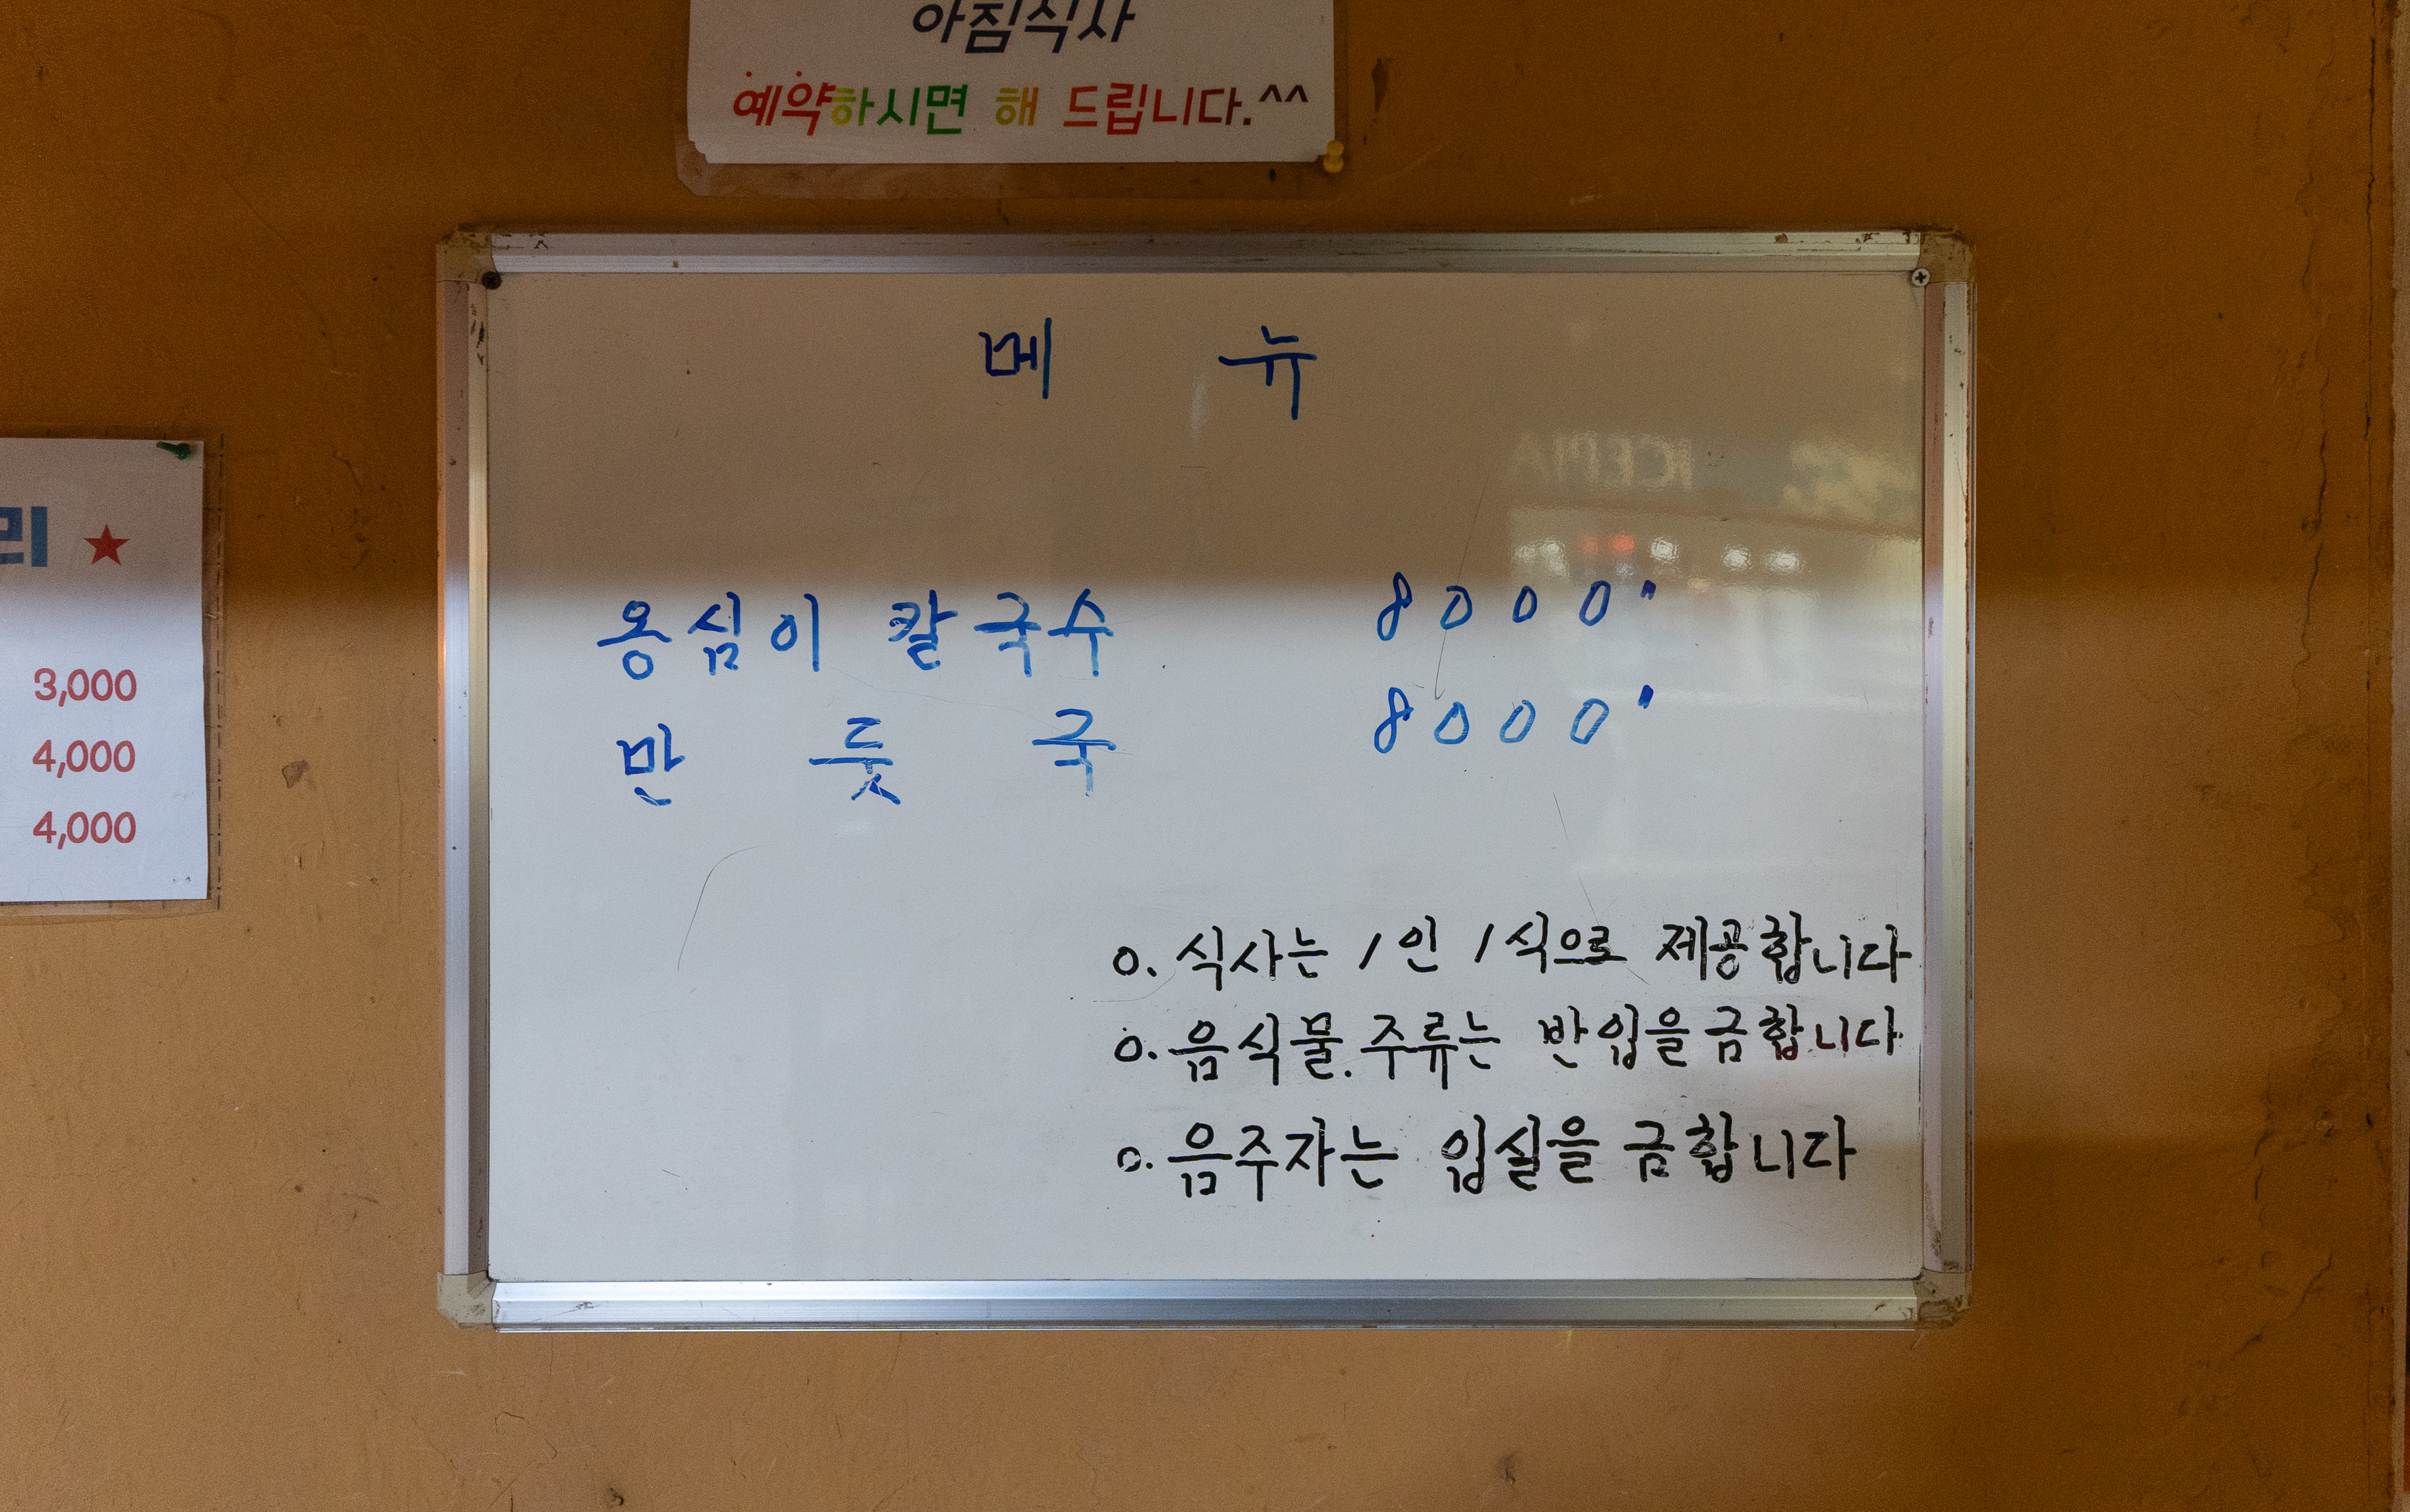 아침식사
예약하시면 해 드립니다.^^
리 ★
3,000
4,000
4,000
메 뉴
ICEPIA
옹심이 칼국수 8000"
만 둣 국 8000"
o. 식사는 1인 1식으로 제공합니다
o. 음식물.주류는 반입을금합니다
o. 음주자는 입실을 금합니다